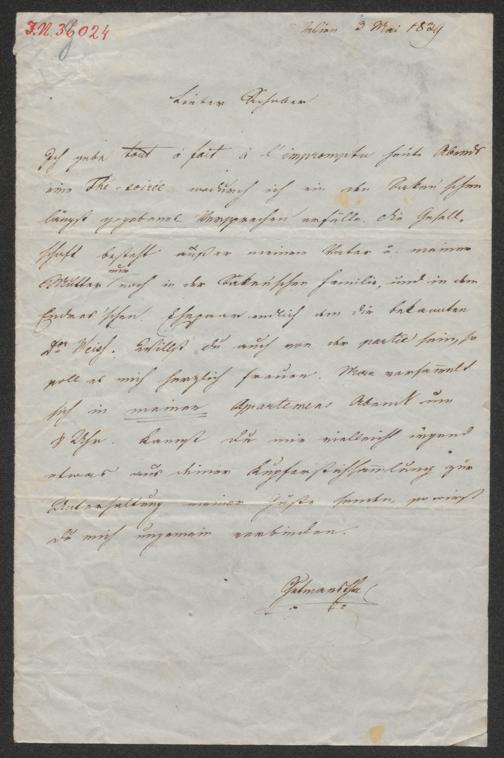 I.N. 36024
Wien 3 Mai 1829
Lieber Schober
Ich gebe tout à fait à l'impromptu heute Abends
eine The-soirée wodurch ich ein den
längst gegebenes Versprechen erfülle. Die Gesell-
schaft besteht außer meinem Vater u. meiner
Mutter nur noch in der Familie, und in dem
schen Ehepaar endlich in die bekannten
Dr. Willst du auch von der partie sein, so
soll es mich herzlich freuen. Man versammelt
sich in meinem Apartement Abends um
8 Uhr. Kannst Du mir vielleicht irgend
etwas aus deiner Kupferstichsammlung zur
Unterhaltung meiner Gäste senden, so wirst
Du mich ungemein verbinden.